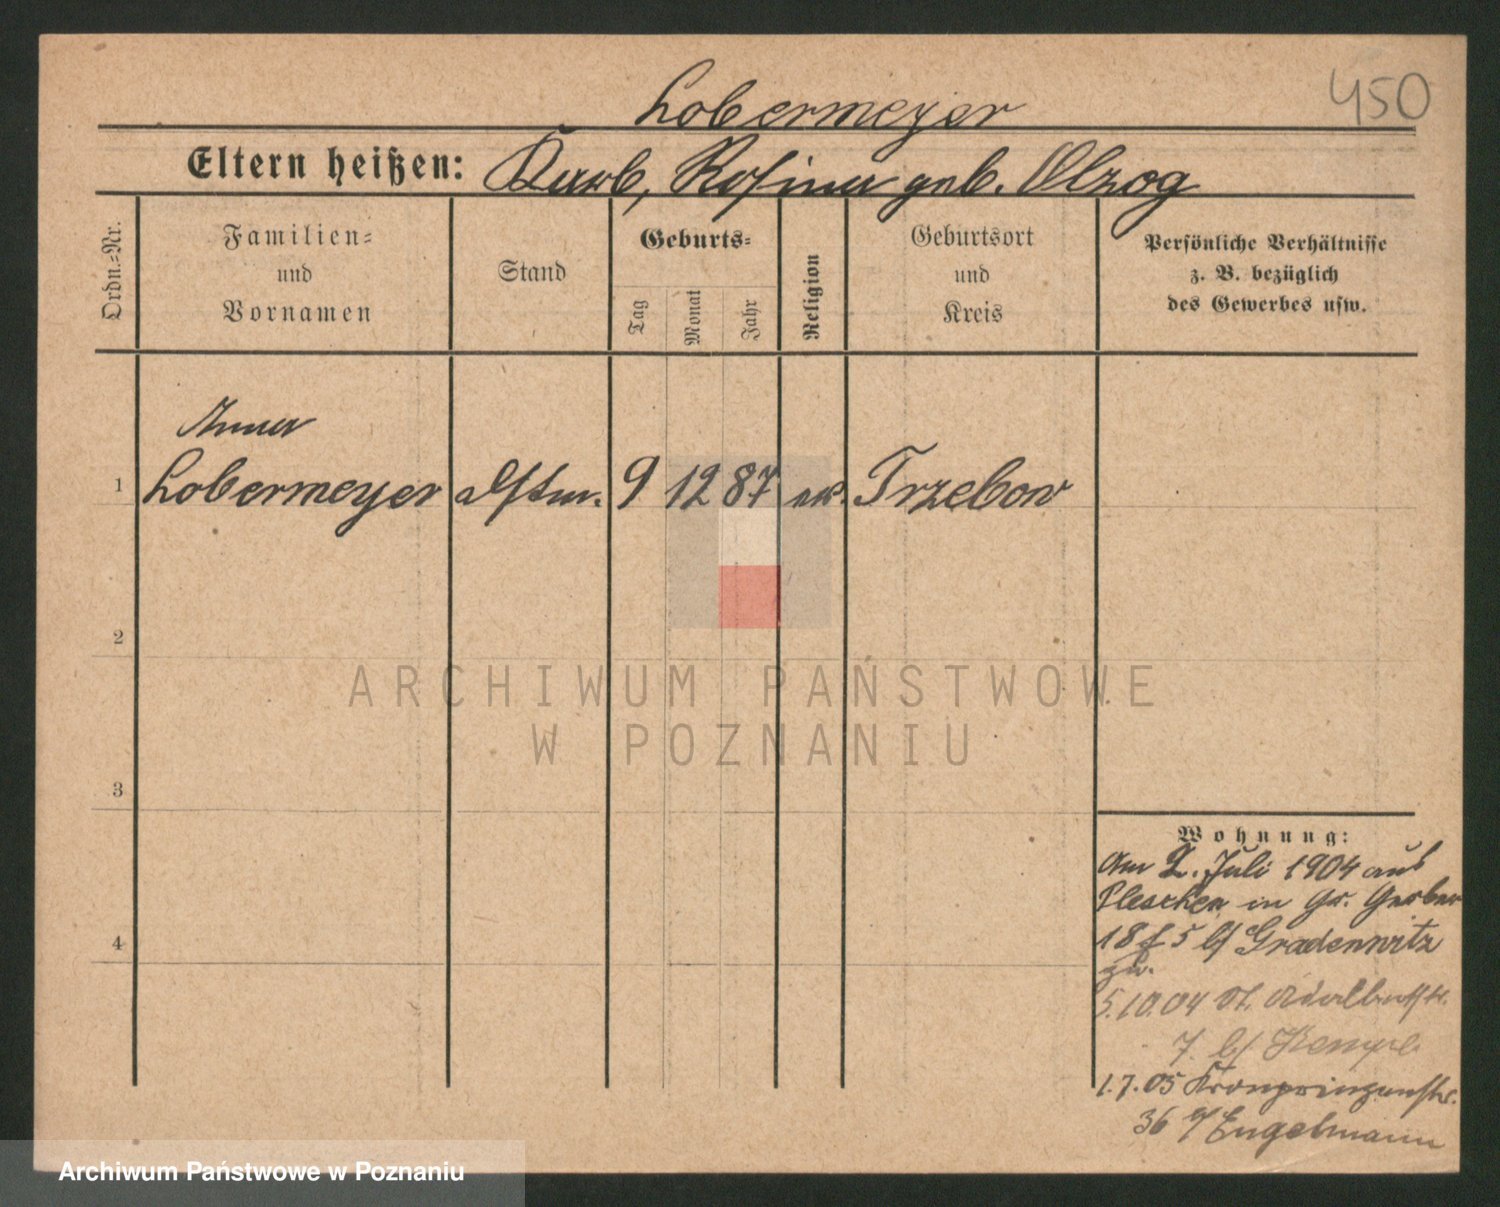 450
Lobermeyer
Eltern heißen: Rosina geb. Olzog
Ordn.-Nr.
Familien-
und
Vornamen
Stand
Geburts-
Tag
Monat
Jahr
Religion
Geburtsort
und
Kreis
Persönliche Verhältnisse
z. B. bezüglich
des Gewerbes usw.
Anna
1 Lobermeyer 9 12 87 Trzebow
2
3
4
ARCHIWUM PAŃSTWOWE
W POZNANIU
Wohnung:
Am 2. Juli 1904 aus
Pleschen in Gr. Gerber
18 b/ Gradenwitz
zu.
5.10.04 St. Adalbertstr.
7. b/
1.7.05 Kronprinzenstr.
36 b/ Engelmann
Archiwum Państwowe w Poznaniu